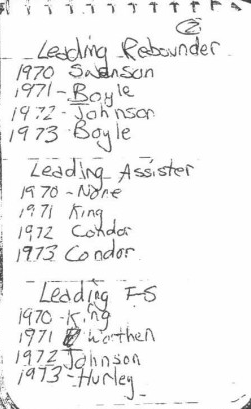 2
Leading Rebounder
1970 Swenson
1971 - Boyle
1972 - Johnson
1973 Boyle
Leading Assister
1970 - None
1971 King
1972 Condor
1973 Condor
Leading FS
1970 - King
1971 Worthen
1972 Johnson
1973 - Hurley